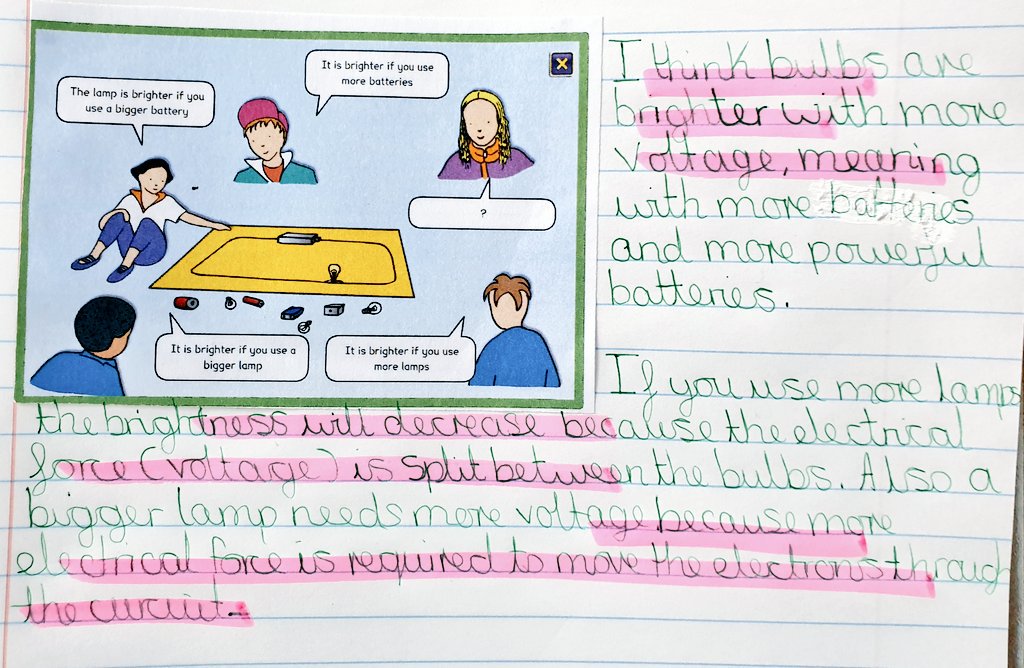 It is brighter if you use
more batteries
The lamp is brighter if you
use a bigger battery
?
It is brighter if you use a
bigger lamp
It is brighter if you use
more lamps
I think bulbs are
brighter with more
voltage, meaning
with more batteries
and more powerful
batteries.
If you use more lamps
the brightness will decrease because the electrical
force (voltage) is split between the bulbs. Also a
bigger lamp needs more voltage because more
electrical force is required to move the electrons through
the circuit.